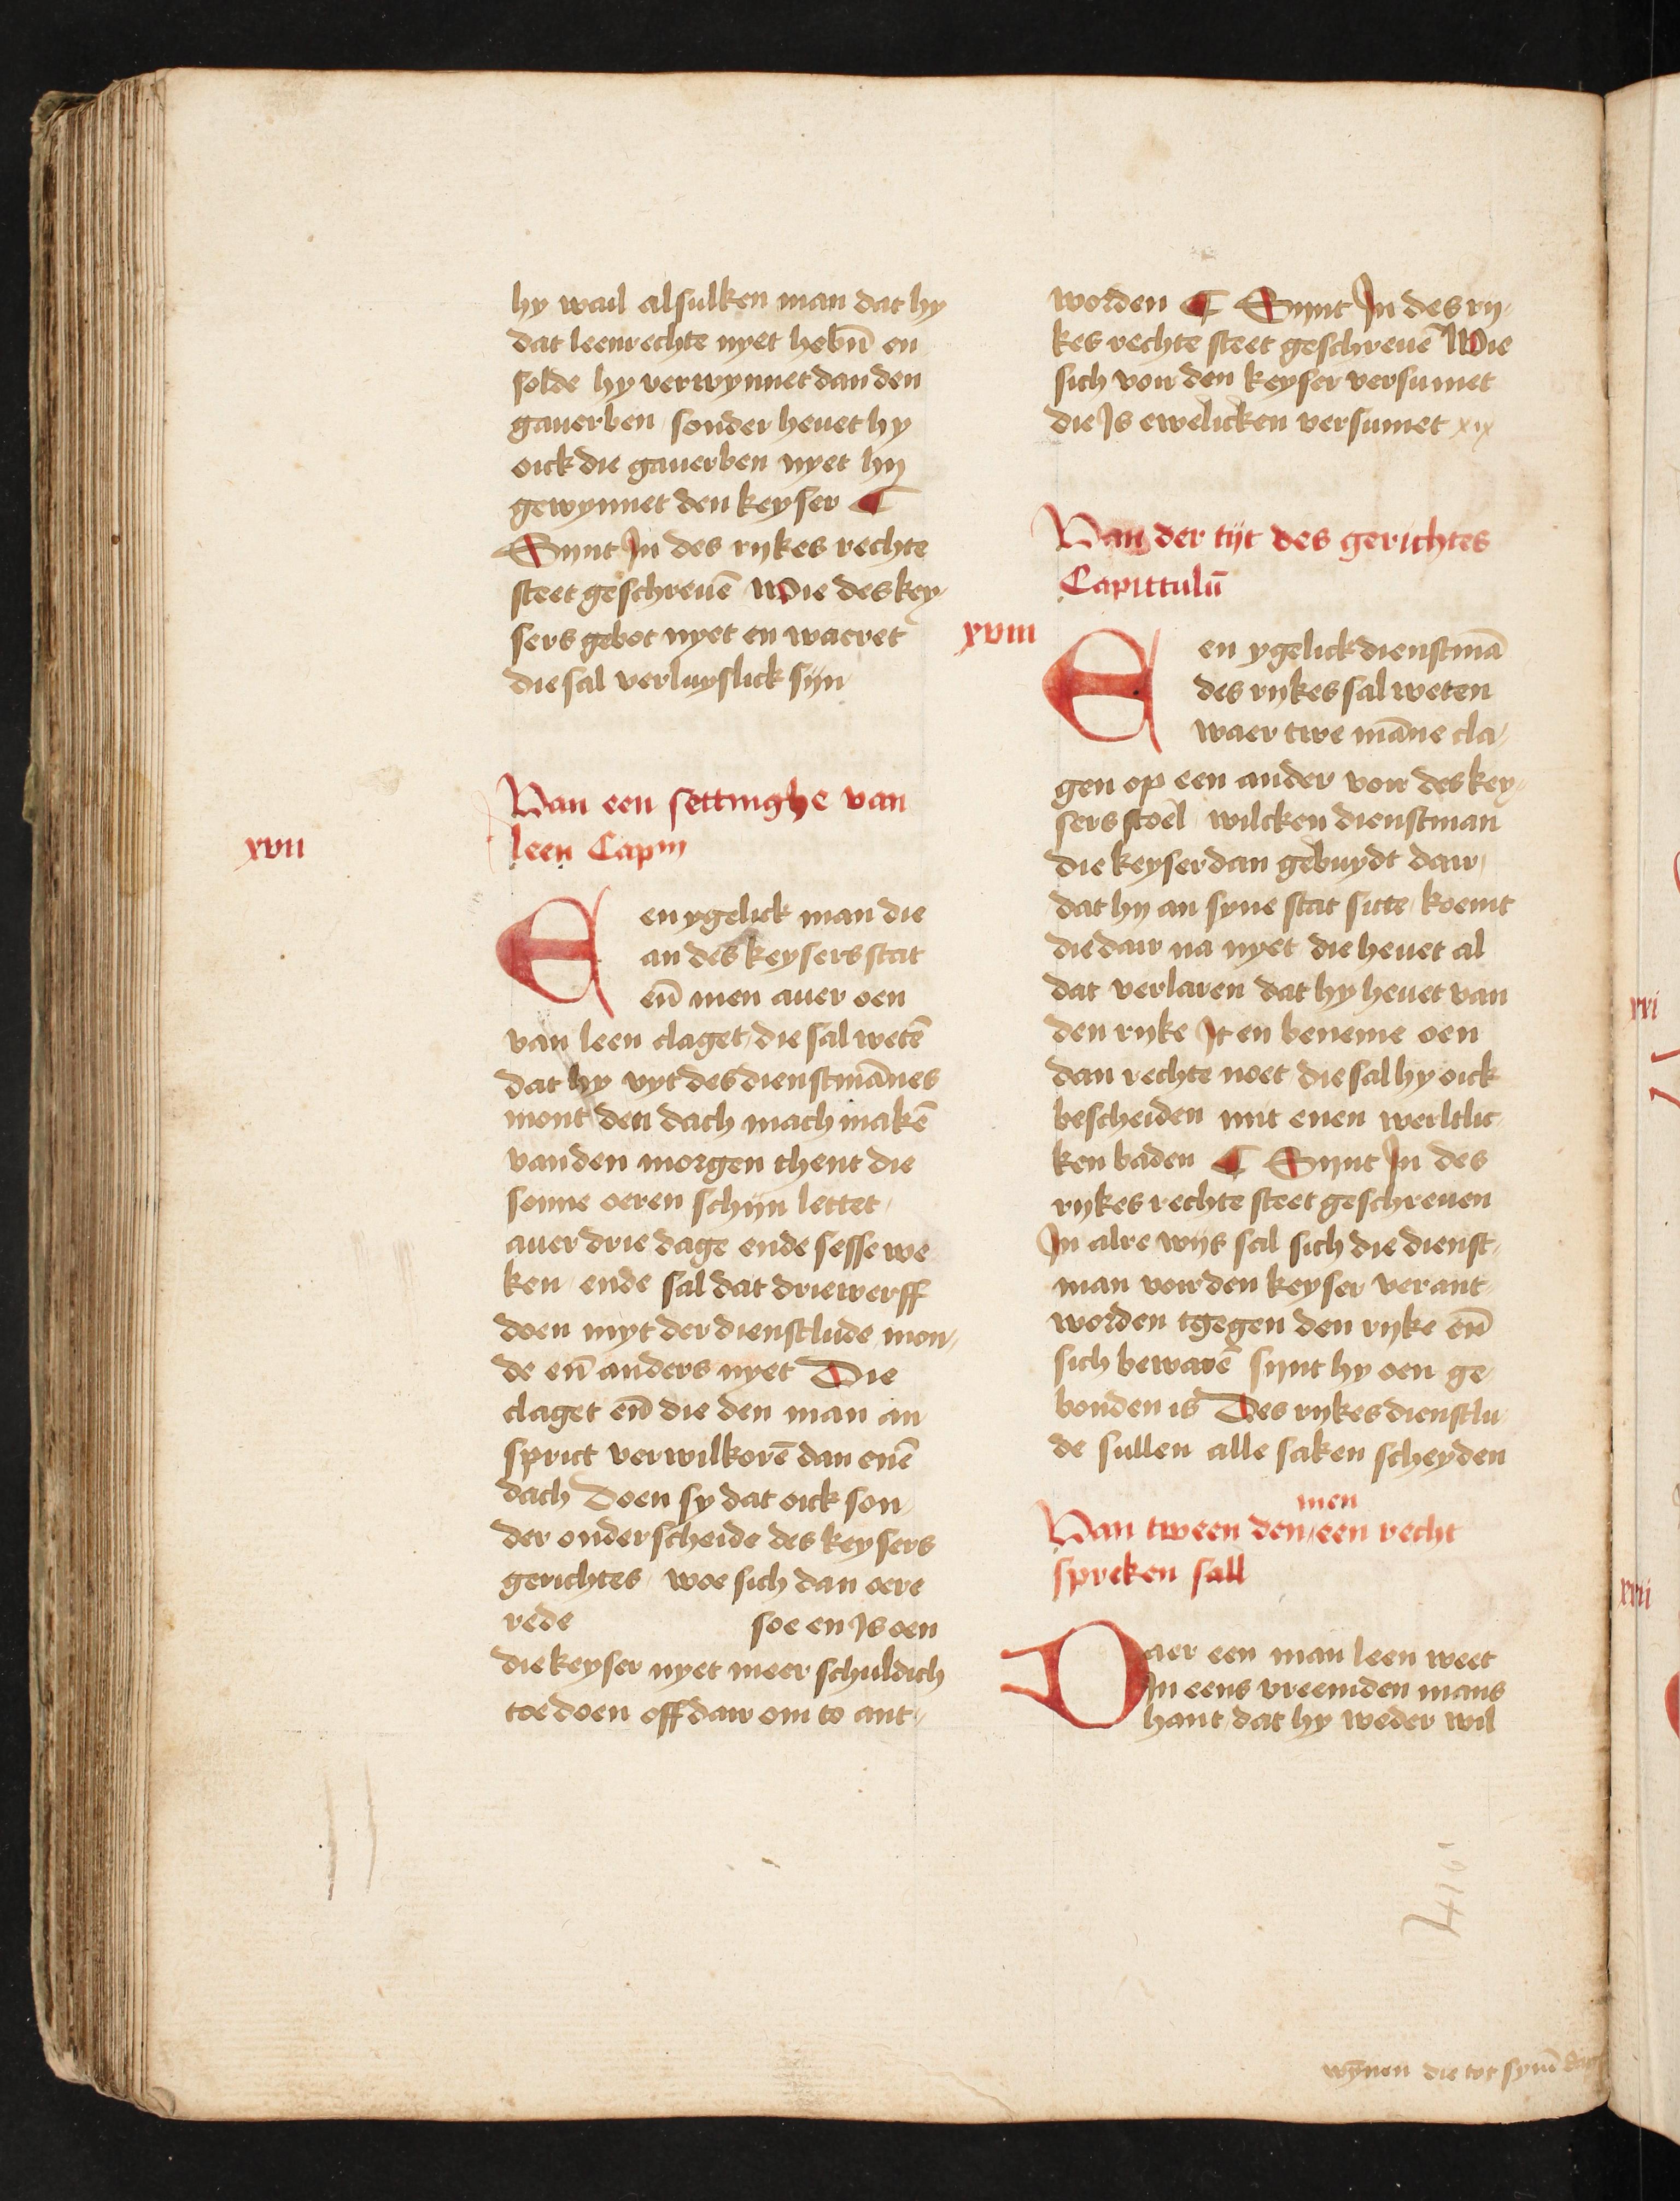 hy wail alsulken man dat hy
dat leenrechte nyet hebn̄ en
solde hy verwynnet dan den
gauerben sonder heuet hy
oick die gauerben nyet hy
gewynnet den keyser ¶
Synt In des rykes rechte
steet geschreuē Wie des key-
sers gebot nyet en waeret
die sal verluyslick sijn
Van een settinghe van
xvii
leen Capm
Een ygelick man die
an des keysers stat
en̄ men auer oen
van leen claget die sal wetē
dat hy vyt des dienstmānes
mont den dach mach makē
van den morgen thent die
sonne oeren schijn lettet
auer drie dage ende sesse we
ken ende sal dat driewerff
doen myt der dienstlude mon-
de en̄ anders nyet Die
claget en̄ die den man an
sprict verwilkorē dan enē
dach Doen sy dat oick son-
der onderscheide des keysers
gerichtes woe sich dan oere
rede soe en Is oen
die keyser nyet meer schuldich
toe doen off dair om to ant-
worden ¶ Synt In des ry-
kes rechte steet geschreuē Wie
sich voir den keyser versumet
die Is ewelicken versumet xix
Van der tijt des gerichtes
Capittulū
xviii
Een ygelick dienstmā
des rykes sal weten
waer twe māne cla-
gen op een ander voir des key-
sers stoel wilcken dienstman
die keyser dan gebuydt dair
dat hy an syne stat sitte koemt
die dair na nyet die heuet al
dat verlaren dat hy heuet van
den ryke It en beneme oen
dan rechte noet die sal hy oick
bescheiden mit enen werltlic
ken baden ¶ Synt In des
rykes rechte steet geschreuen
In alre wijs sal sich die dienst-
man voir den keyser verant-
worden tgegen den ryke en̄
sich bewarē sijnt hy oen ge-
bonden is Des rykes dienstlu
de sullen alle saken scheyden
men
Van tween den een recht
spreken sall
Daer een man leen weet
In eens vreemden mans
hant dat hy weder wil
410
wȳnen die tot synē dage